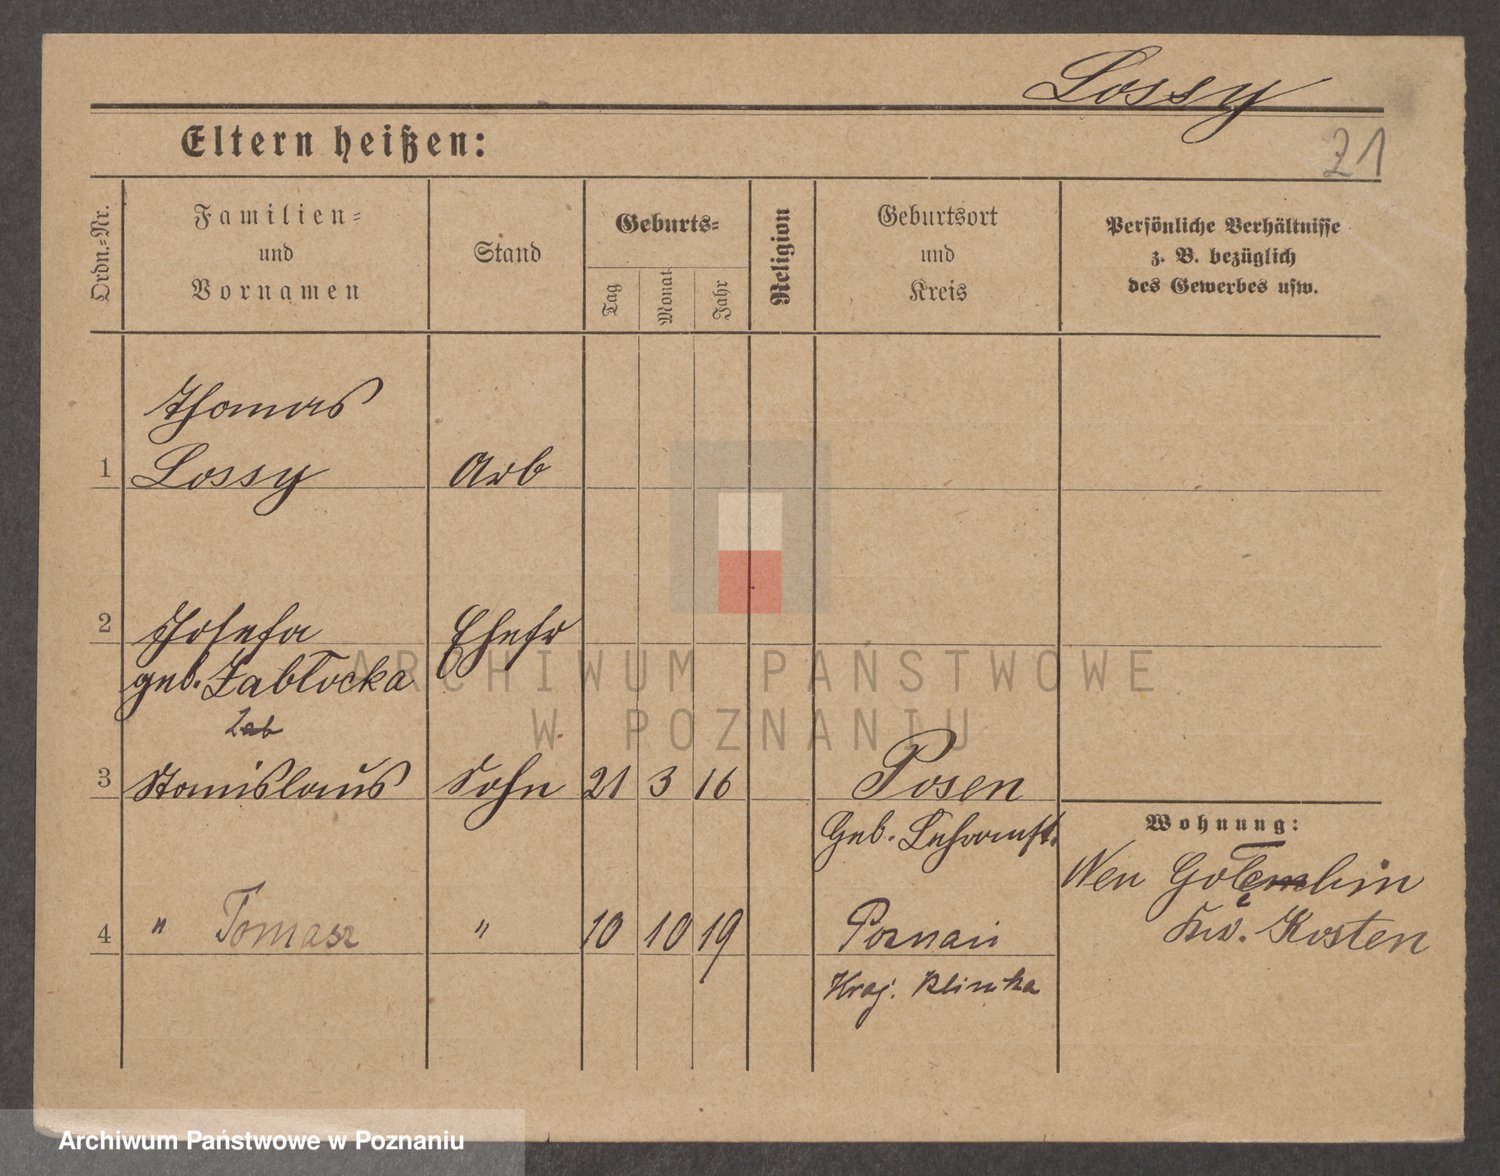 Lossy
21
Eltern heißen:
Ordn.-Nr.
Familien-
und
Vornamen
Stand
Geburts-
Tag
Monat
Jahr
Religion
Geburtsort
und
Kreis
Persönliche Verhältnisse
z. B. bezüglich
des Gewerbes usw.
Thomas
1 Lossy Arb
2 Josefa Ehefr
geb. Zabłocka
Zab
3 Stanislaus Sohn 21 3 16 Posen
Geb. Lehranst.
Wohnung:
Neu Golembin
Krs. Kosten
4 " Tomasz " 10 10 19 Poznań
Kraj. Klinika
ARCHIWUM PAŃSTWOWE
W POZNANIU
Archiwum Państwowe w Poznaniu